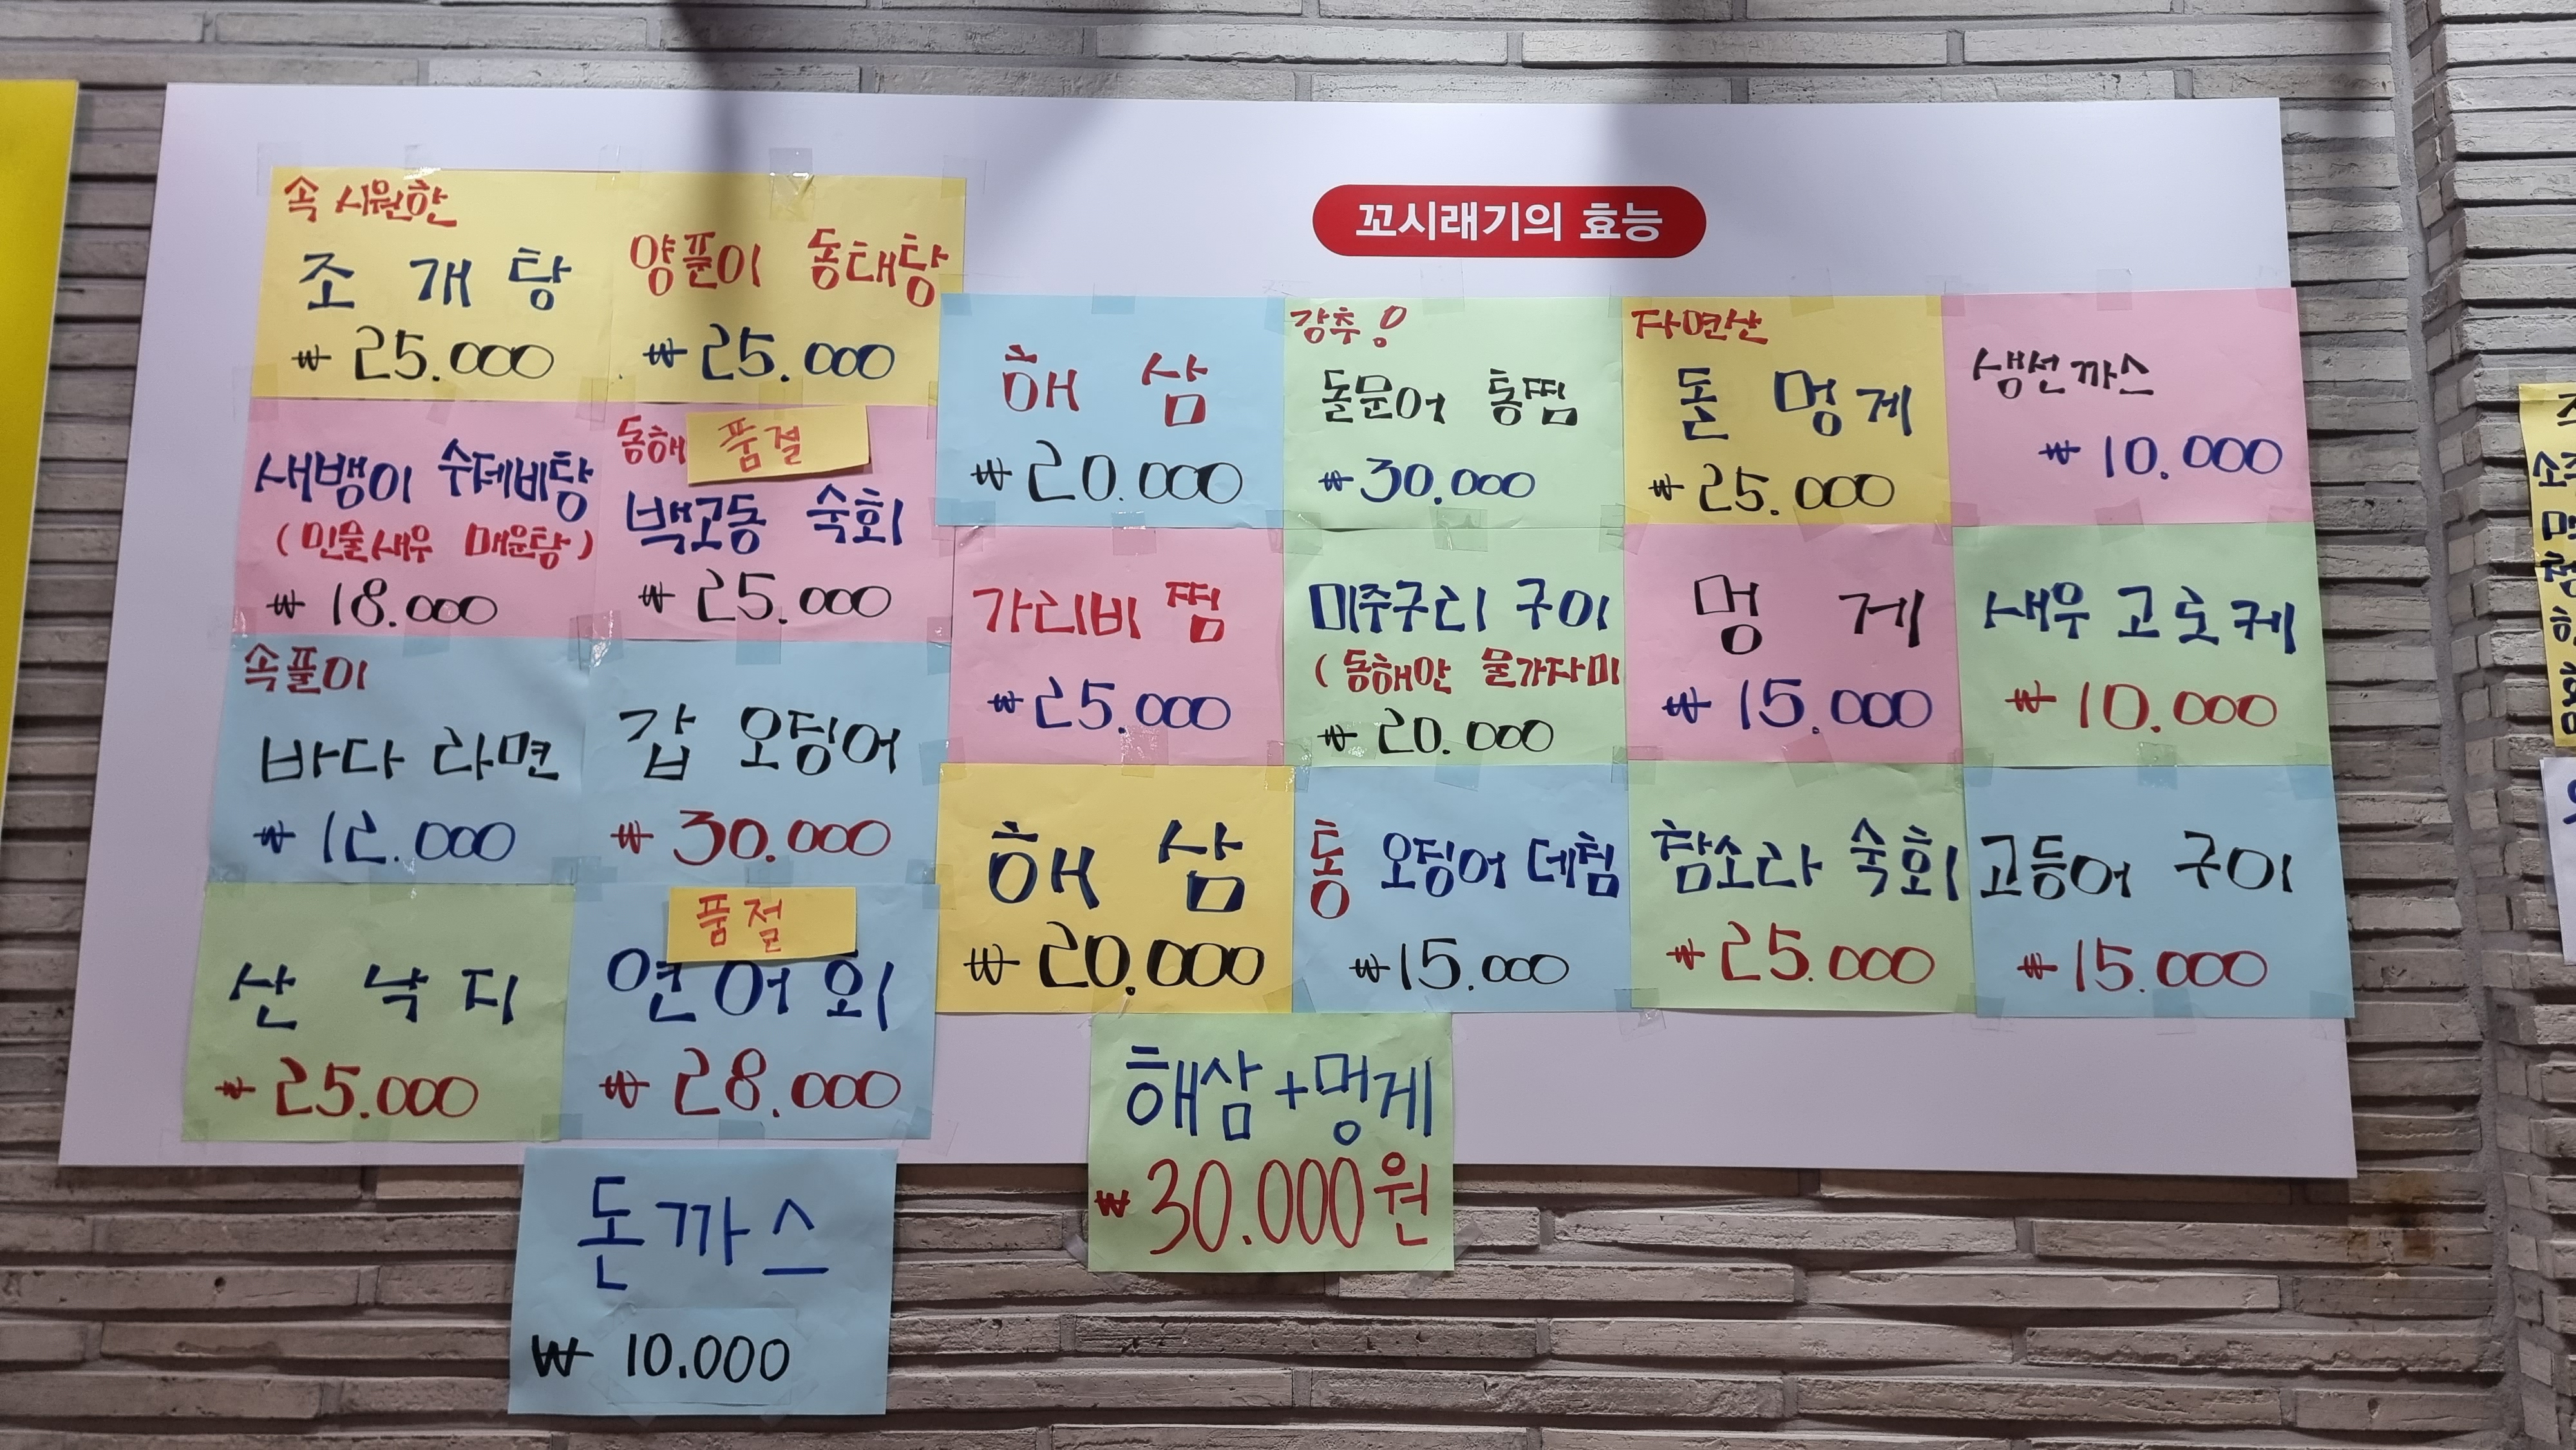 꼬시래기의 효능
속 시원한
조개탕
₩25.000
양푼이 동태탕
₩25.000
새뱅이 수제비탕
(민물새우 매운탕)
₩18.000
동해
품절
백고동 숙회
₩25.000
속풀이
바다 라면
₩12.000
갑 오징어
₩30.000
산 낙지
₩25.000
품절
연어회
₩28.000
돈까스
₩10.000
해 삼
₩20.000
강추!
돌문어 통찜
₩30.000
자연산
돌 멍게
₩25.000
생선까스
₩10.000
가리비 찜
₩25.000
미주구리 구이
(동해안 물가자미
₩20.000
멍 게
₩15.000
새우 고로케
₩10.000
해 삼
₩20.000
통 오징어 데침
₩15.000
참소라 숙회
₩25.000
고등어 구이
₩15.000
해삼+멍게
₩30.000원